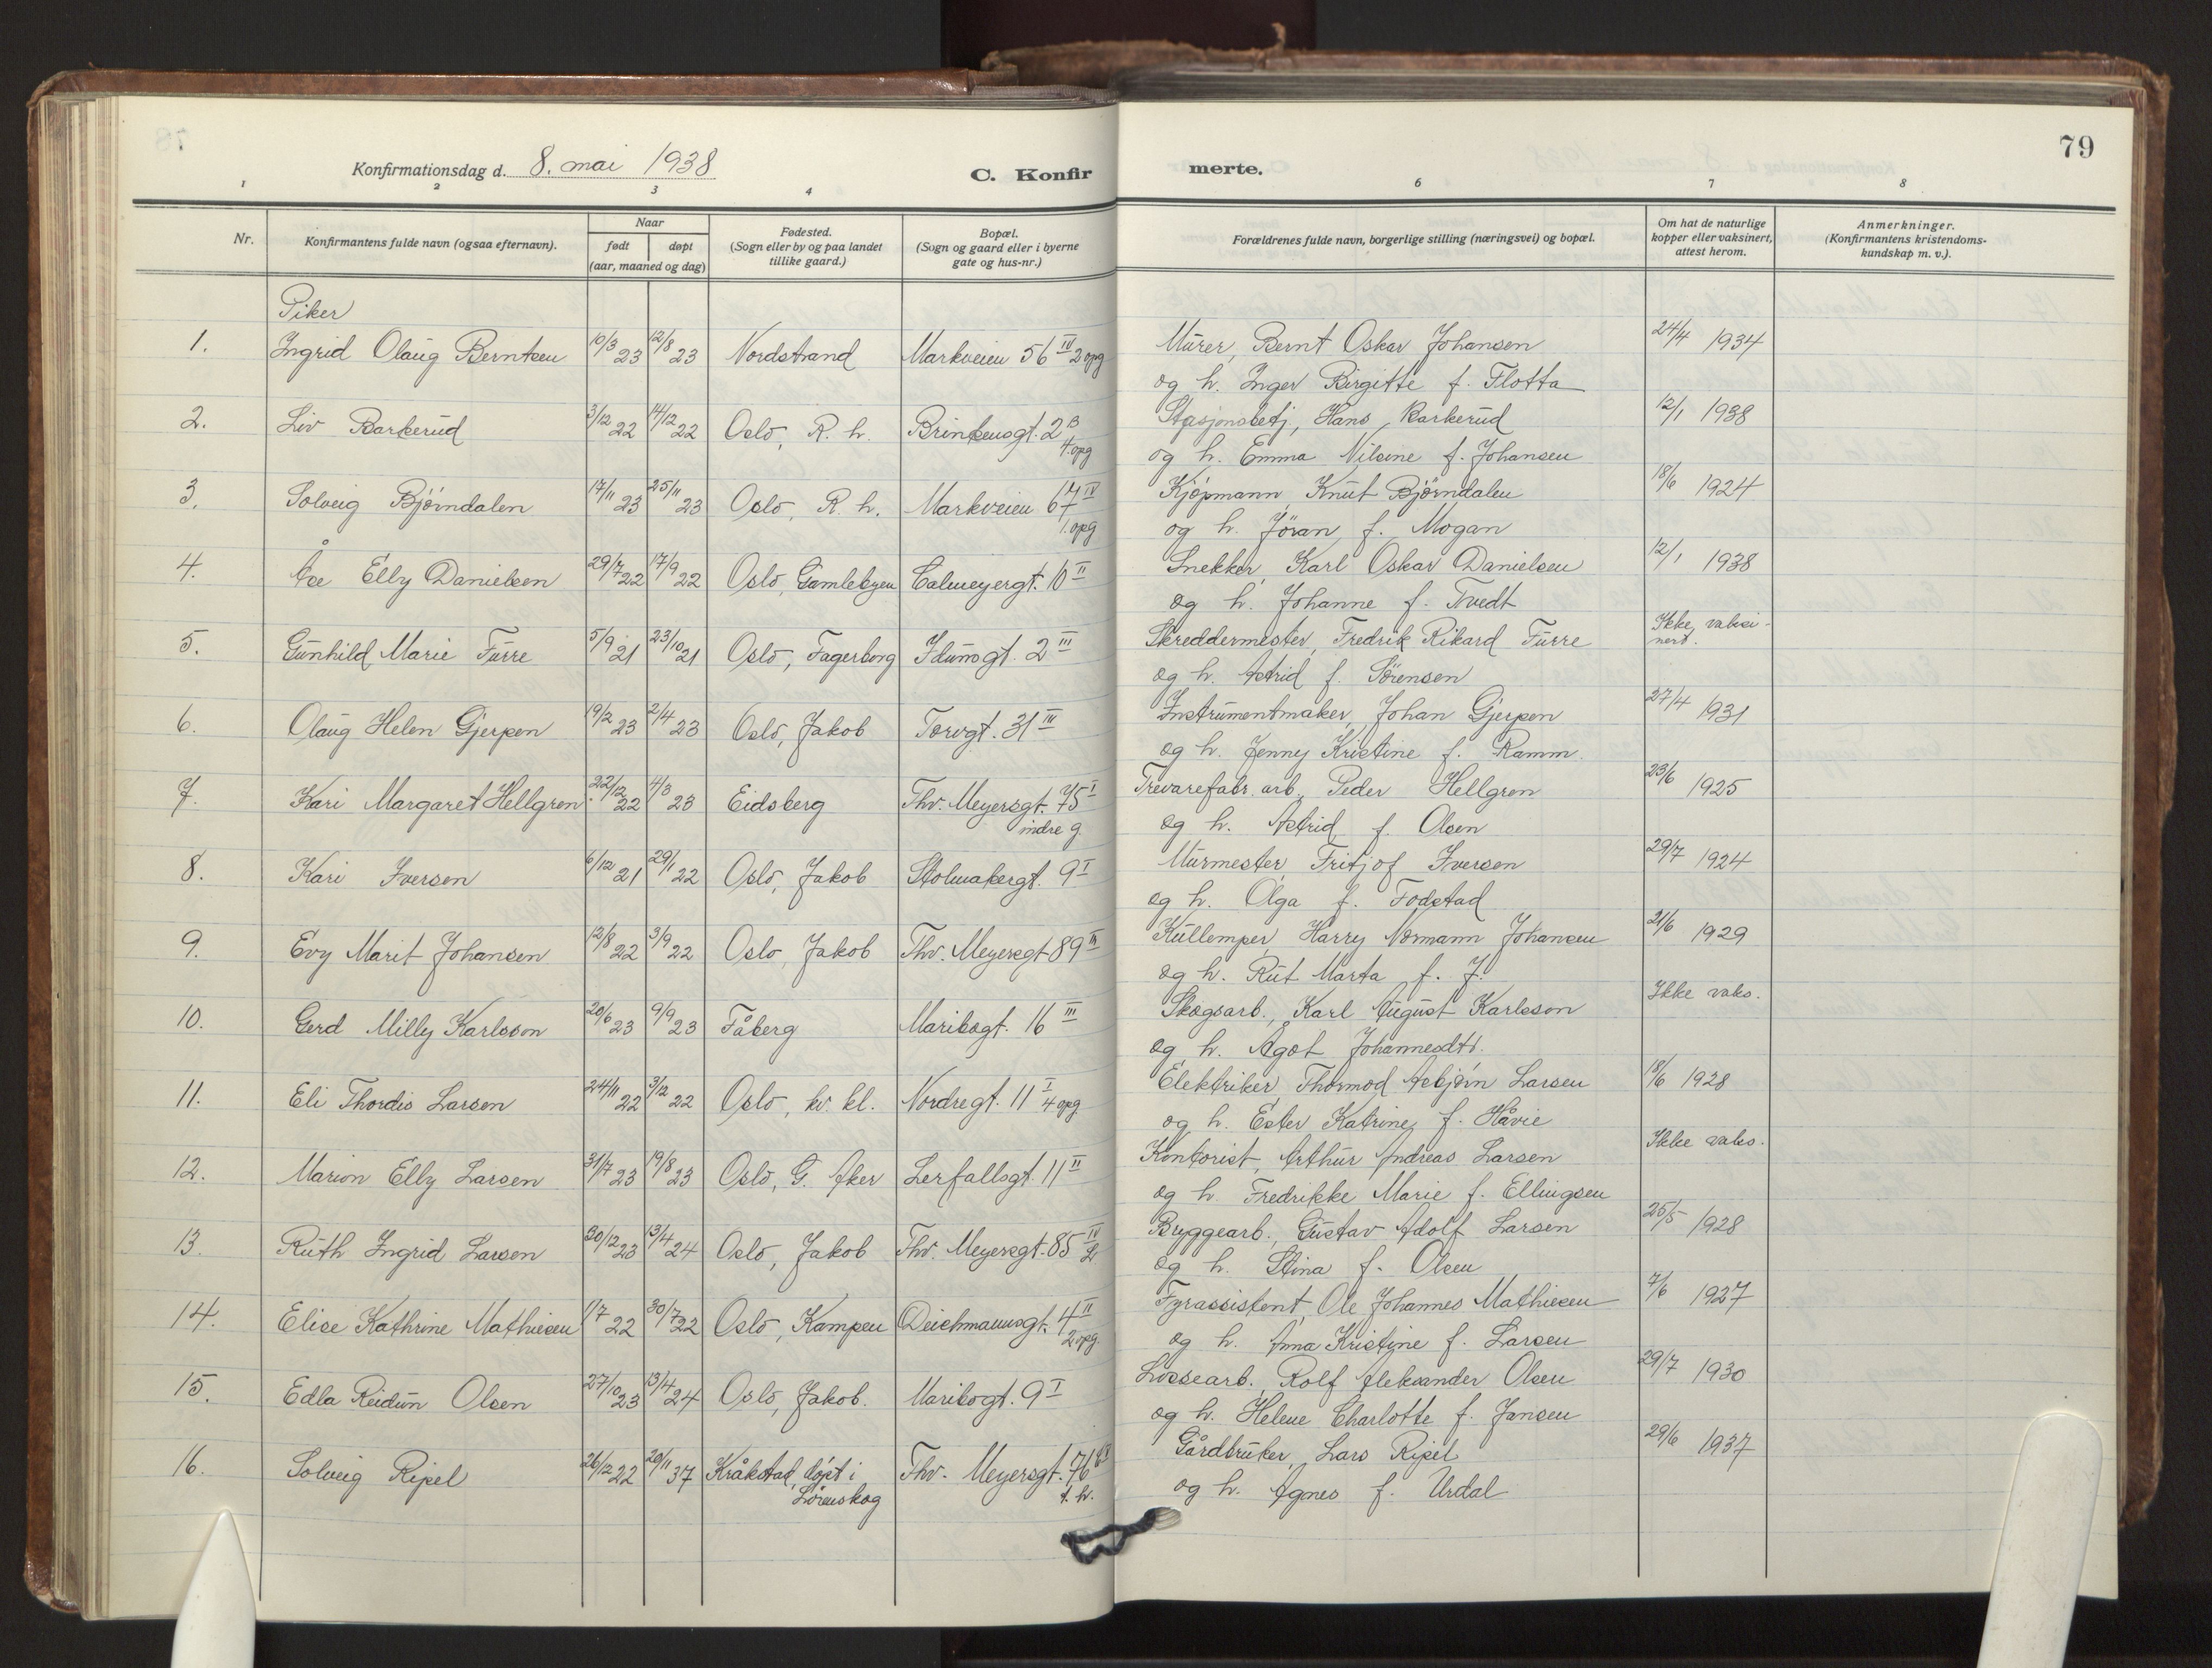 79
Konfirmationsdag d. 8. mai 1938
C. Konfirmerte.
1 2 3 4 6 7 8
Nr.
Konfirmantens fulde navn (ogsaa efternavn).
Naar
født døpt
(aar, maaned og dag)
Fødested.
(Sogn eller by og paa landet
tillike gaard.)
Bopæl.
(Sogn og gaard eller i byerne
gate og hus-nr.)
Forældrenes fulde navn, borgerlige stilling (næringsvei) og bopæl.
Om hat de naturlige
kopper eller vaksinert,
attest herom.
Anmerkninger.
(Konfirmantens kristendoms-
kundskap m. v.).
Piker
1. Ingrid Olaug Berntsen 10/3 23 12/8 23 Nordstrand Markveien 56 IV 2 opg Murer, Bernt Oskar Johansen 24/4 1934
og h. Inger Birgitte f. Flotta
2. Liv Barkerud 3/12 22 14/12 22 Oslo, R. h. Brinkensgt. 2 B Stasjonsbetj., Hans Barkerud 12/1 1938
4. opg og h. Emma Nilsine f. Johansen
3. Solveig Bjørndalen 17/11 23 25/11 23 Oslo, R. h. Markveien 67 IV Kjøpmann, Knut Bjørndalen 18/6 1924
1. opg og h. Jøran f. Mogan
4. Åse Elly Danielsen 29/7 22 17/9 22 Oslo, Gamlebyen Calmeyergt. 10 II Snekker, Karl Oskar Danielsen 12/1 1938
og h. Johanne f. Tvedt
5. Gunhild Marie Furre 5/9 21 23/10 21 Oslo, Fagerborg Idunsgt. 2 III Skreddermester, Fredrik Rikard Furre Ikke vaksi-
nert.
og h. Astrid f. Sørensen
6. Olaug Helen Gjerpen 19/2 23 2/4 23 Oslo, Jakob Torvgt. 31 III Instrumentmaker, Johan Gjerpen 27/4 1931
og h. Jenny Kristine f. Ramm
7. Kari Margaret Hellgren 22/12 22 4/3 23 Eidsberg Thv. Meyersgt. 75 I Trevarefabr. arb., Peder Hellgren 23/6 1925
indre g. og h. Astrid f. Olsen
8. Kari Iversen 6/12 21 29/1 22 Oslo, Jakob Stolmakergt. 9 I Murmester, Fritjof Iversen 29/7 1924
og h. Olga f. Fodstad
9. Evy Marit Johansen 12/8 22 3/9 22 Oslo, Jakob Thv. Meyersgt 89 III Kullemper, Harry Normann Johansen 21/6 1929
og h. Rut Marta f. J.
10. Gerd Milly Karlsson 20/6 23 9/9 23 Fåberg Maribogt. 16 III Skogsarb., Karl August Karlsson Ikke vaks.
og h. Ågot Johannesdtr.
11. Eli Thordis Larsen 24/11 22 3/12 22 Oslo, kv. kl. Nordregt. 11 I 4 opg Elektriker, Thormod Asbjørn Larsen 18/6 1928
og h. Ester Katrine f. Håvie
12. Marion Elly Larsen 31/7 23 19/8 23 Oslo, G. Aker Lerfallsgt. 11 II Kontorist, Arthur Andreas Larsen Ikke vaks.
og h. Fredrikke Marie f. Ellingsen
13. Ruth Ingrid Larsen 30/12 23 13/4 24 Oslo, Jakob Thv. Meyersgt. 85 IV Bryggearb., Gustav Adolf Larsen 25/5 1928
og h. Stina f. Olsen
14. Elise Kathrine Mathiesen 1/7 22 30/7 22 Oslo, Kampen Deichmannsgt. 4 II Fyrassistent, Ole Johannes Mathiesen 7/6 1927
2 opg. og h. Anna Kristine f. Larsen
15. Edla Reidun Olsen 27/10 23 13/4 24 Oslo, Jakob. Maribogt. 9 I Lossearb. Rolf Aleksander Olsen 29/7 1930
og h. Helene Charlotte f. Jansen
16. Solveig Ripel 26/12 22 20/11 37 Kråkstad, døpt i Thv. Meyersgt. 76 Gårdbruker, Lars Ripel 29/6 1937
Lørenskog t. h. og h. Agnes f. Urdal